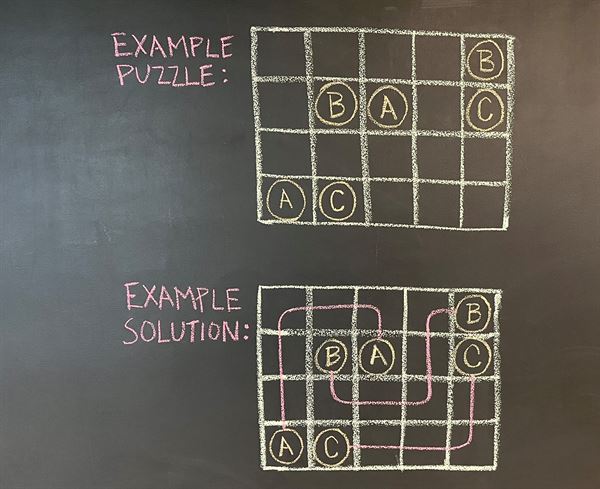 EXAMPLE
PUZZLE:
B
B A C
A C
EXAMPLE
SOLUTION:
B
B A C
A C